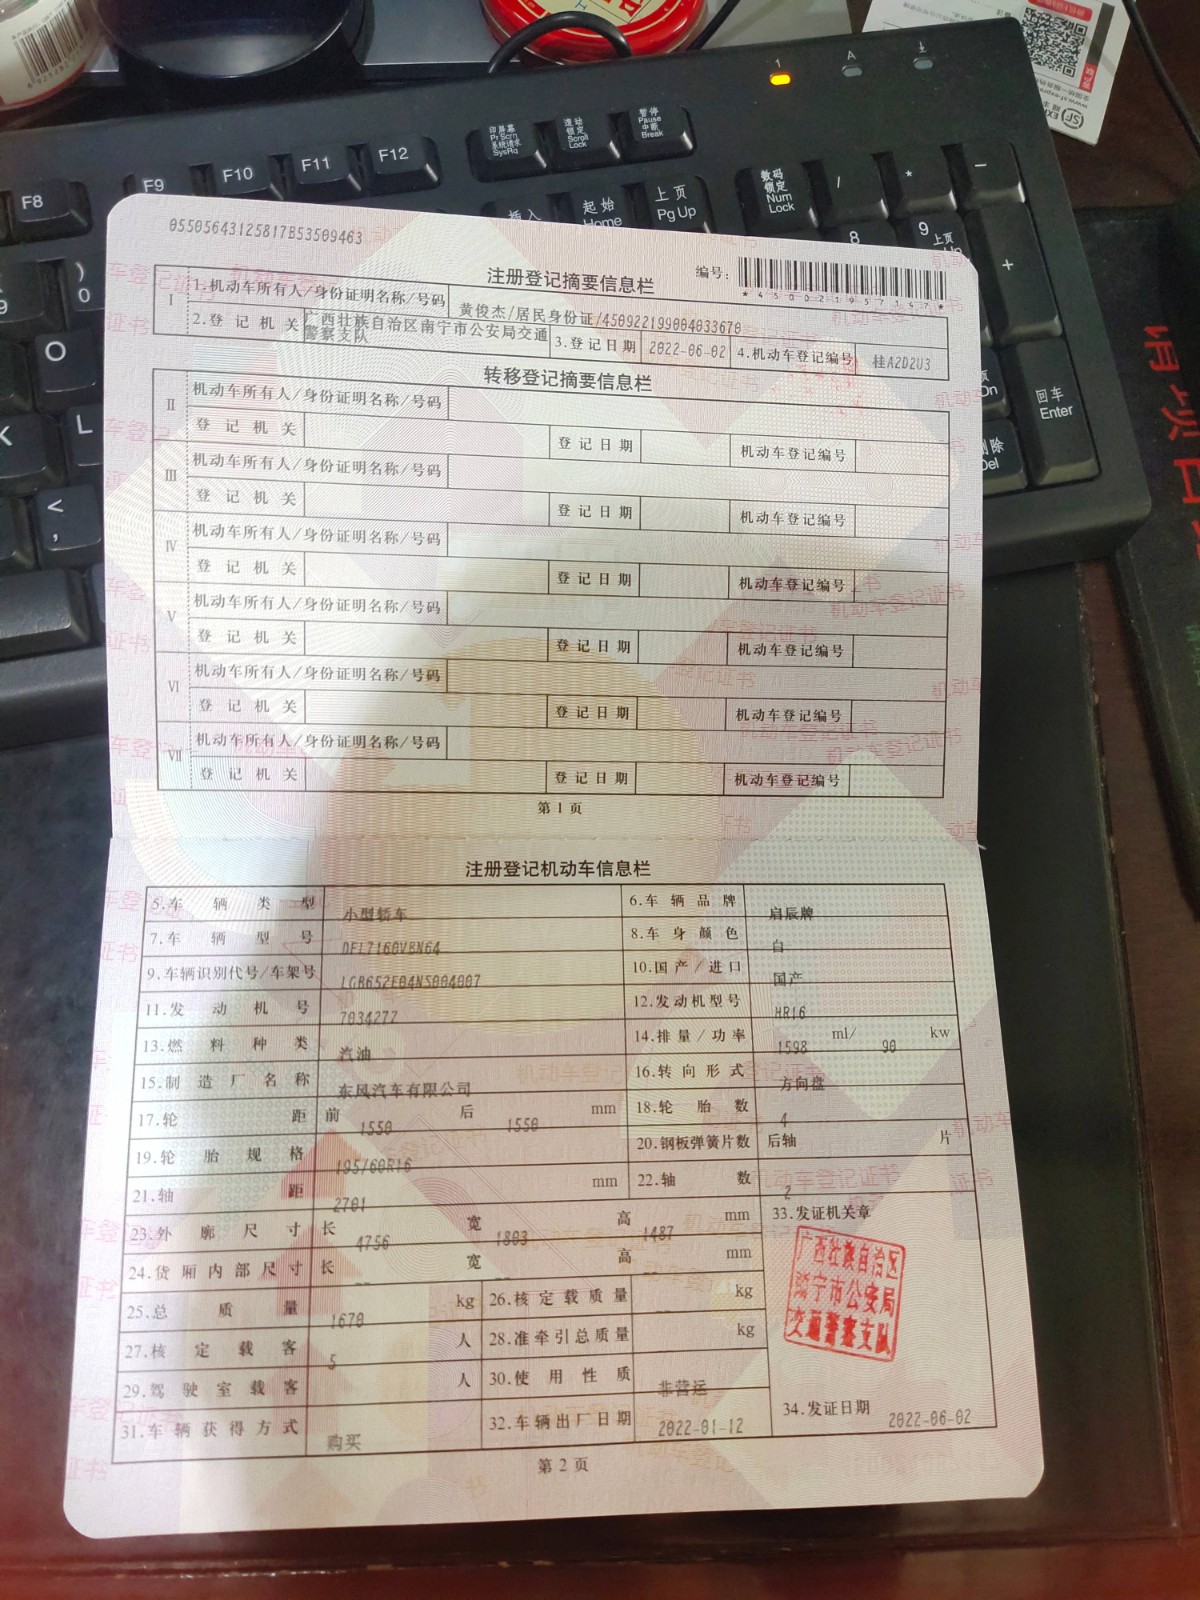 F8
F9
F10
F11
F12
印屏幕
Pr Scrn
系统请求
SysRq
滚动
锁定
Scroll
Lock
暂停
Pause
中断
Break
1
A
起始
Home
上页
Pg Up
数码
锁定
Num
Lock
/
*
-
8
9
+
回车
Enter
O
K
L
<
,
055056431258178535094​63
注册登记摘要信息栏
编号:
*450021957147*
I
1.机动车所有人/身份证明名称/号码
黄俊杰/居民身份证/450922199004033670
2.登记机关
广西壮族自治区南宁市公安局交通
警察支队
3.登记日期
2022-06-02
4.机动车登记编号
桂A2D2U3
转移登记摘要信息栏
II
机动车所有人/身份证明名称/号码
登记机关
登记日期
机动车登记编号
III
机动车所有人/身份证明名称/号码
登记机关
登记日期
机动车登记编号
IV
机动车所有人/身份证明名称/号码
登记机关
登记日期
机动车登记编号
V
机动车所有人/身份证明名称/号码
登记机关
登记日期
机动车登记编号
VI
机动车所有人/身份证明名称/号码
登记机关
登记日期
机动车登记编号
VII
机动车所有人/身份证明名称/号码
登记机关
登记日期
机动车登记编号
第1页
注册登记机动车信息栏
5.车辆类型
小型轿车
6.车辆品牌
启辰牌
7.车辆型号
DFL7160VBN64
8.车身颜色
白
9.车辆识别代号/车架号
LGB652E04NS004007
10.国产/进口
国产
11.发动机号
703427Z
12.发动机型号
HR16
13.燃料种类
汽油
14.排量/功率
1598 ml/ 90 kw
15.制造厂名称
东风汽车有限公司
16.转向形式
方向盘
17.轮距
前 1550 后 1550 mm
18.轮胎数
4
19.轮胎规格
195/60R16
20.钢板弹簧片数
后轴 片
21.轴距
2701 mm
22.轴数
2
23.外廓尺寸
长 4756 宽 1803 高 1487 mm
33.发证机关章
24.货厢内部尺寸
长 -- 宽 -- 高 mm
广西壮族自治区
南宁市公安局
交通警察支队
25.总质量
1670 kg
26.核定载质量
-- kg
27.核定载客
5 人
28.准牵引总质量
-- kg
29.驾驶室载客
人
30.使用性质
非营运
31.车辆获得方式
购买
32.车辆出厂日期
2022-01-12
34.发证日期
2022-06-02
第2页